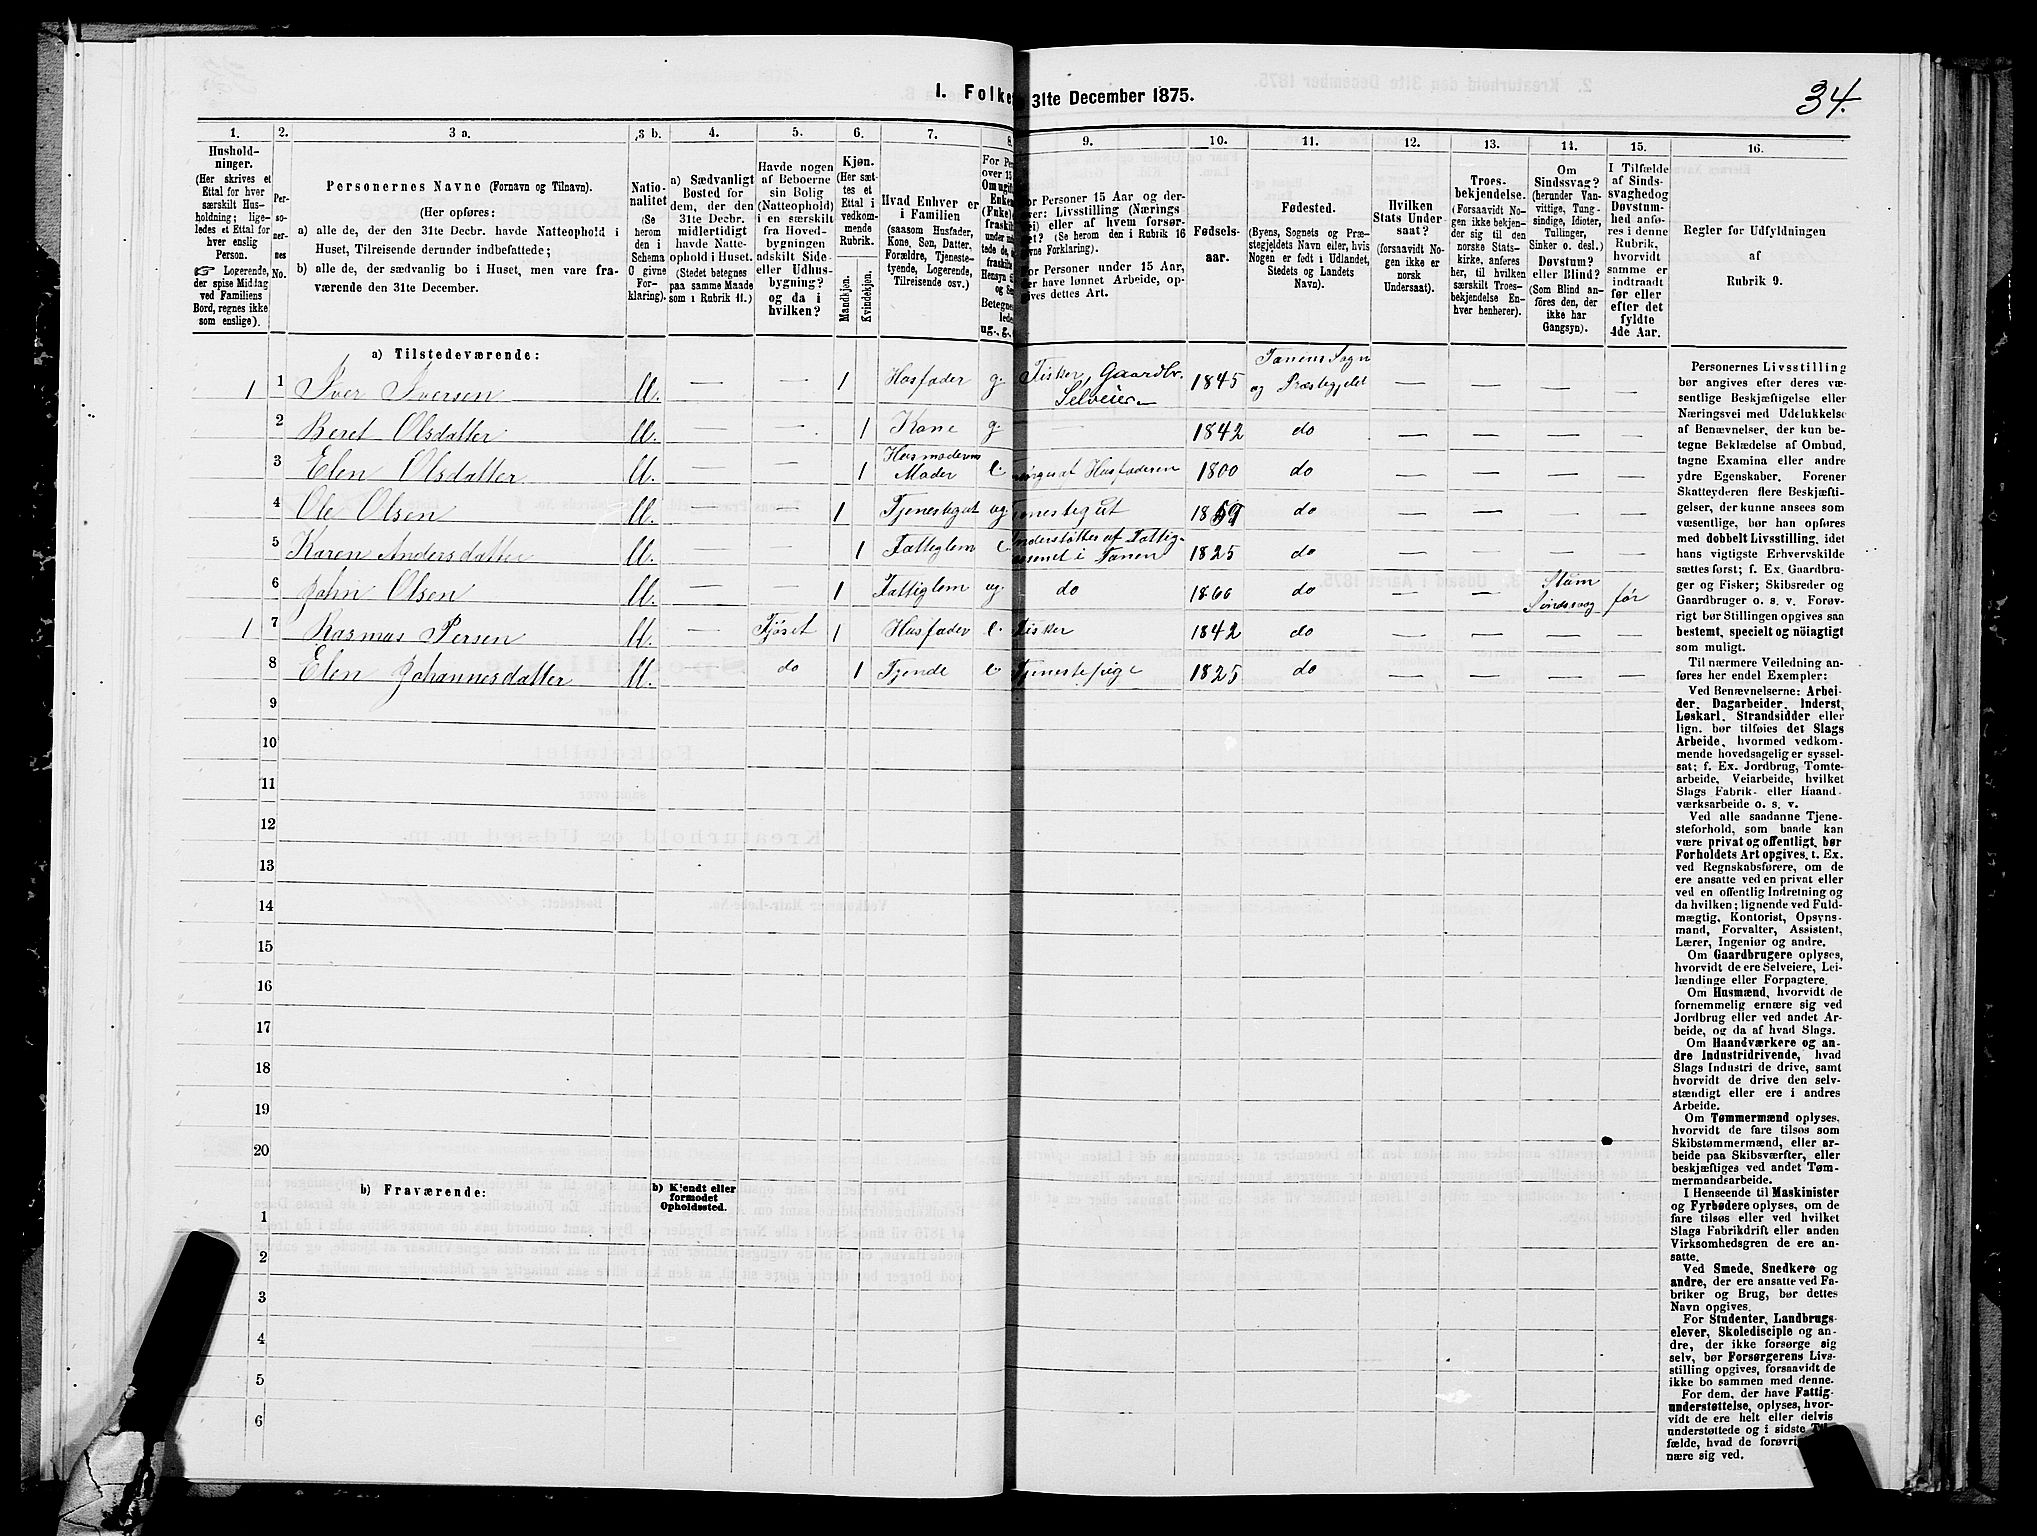 34.
I. Folke 31te December 1875.
1. 2. 3 a. 3 b. 4. 5. 6. 7. 8 9. 10. 11. 12. 13. 14. 15. 16.
Hushold-
ninger.
(Her skrives et
Ettal for hver
særskilt Hus-
holdning; lige-
ledes et Ettal for
hver enslig
Person.
☞ Logerende,
der spise Middag
ved Familiens
Bord, regnes ikke
som enslige).
Per-
so-
ner-
nes
No.
Personernes Navne (Fornavn og Tilnavn).
(Her opføres:
a) alle de, der den 31te Decbr. havde Natteophold i
Huset, Tilreisende derunder indbefattede;
b) alle de, der sædvanlig bo i Huset, men vare fra-
værende den 31te December.
Natio-
nalitet
(Se
herom
den i
Schema
O givne
For-
klaring).
a) Sædvanligt
Bosted for
dem, der den
31te Decbr.
midlertidigt
havde Natte-
ophold i Huset.
(Stedet betegnes
paa samme Maade
som i Rubrik 11.)
Havde nogen
af Beboerne
sin Bolig
(Natteophold)
i en særskilt
fra Hoved-
bygningen
adskilt Side-
eller Udhus-
bygning?
og da i
hvilken?
Kjøn.
(Her sæt-
tes et
Ettal i
vedkom-
mende
Rubrik.
Mandkjøn.
Kvindekjøn.
Hvad Enhver er
i Familien
(saasom Husfader,
Kone, Søn, Datter,
Forældre, Tjeneste-
tyende, Logerende,
Tilreisende osv.)
For Pe
over 15
Om ugif
Enken
(Fuke)
fraskilt
Hensyn ti
og Se
Betegnes
lede
ug., g.,
or Personer 15 Aar og der-
ver: Livsstilling (Nærings
ei) eller af hvem forsør-
et? (Se herom den i Rubrik 16
vne Forklaring).
For Personer under 15 Aar,
er have lønnet Arbeide, op-
gives dettes Art.
Fødsels-
aar.
Fødested.
(Byens, Sognets og Præ-
stegjeldets Navn eller, hvis
Nogen er født i Udlandet,
Stedets og Landets
Navn).
Hvilken
Stats Under-
saat?
(forsaavidt No-
gen ikke er
norsk
Undersaat).
Troes-
bekjendelse.
(Forsaavidt No-
gen ikke bekjen-
der sig til den
norske Stats-
kirke, anføres
her, til hvilken
særskilt Troes-
bekjendelse En-
hver henhører).
Om
Sindssvag?
(herunder Van-
vittige, Tung-
sindige, Idioter,
Tullinger,
Sinker o. desl.)
Døvstum?
eller Blind?
(Som Blind an-
føres den, der
ikke har
Gangsyn).
I Tilfælde
af Sinds-
svaghed og
Døvstum-
hed anfø-
res i denne
Rubrik,
hvorvidt
samme er
indtraadt
før eller
efter det
fyldte
4de Aar.
Regler for Udfyldningen
af
Rubrik 9.
a) Tilstedeværende:
1 1 Iver Iversen — — 1 Husfader g. Fisker, Gaardbr. Selveier 1845 Tanens Sogn og Præstegjeld — — — —
2 Beret Olsdatter — — 1 Kone g. — 1842 do — — — —
3 Elen Olsdatter — — 1 Husmoderens Moder e. Husfaderen 1800 do — — — —
4 Ole Olsen — — 1 Tjenestegut ug. nestegut do — — — —
5 Karen Andersdatter — — 1 Fattiglem e. nderstøttes af Fattig- i Tanen 1825 do — — — —
6 John Olsen — — 1 Fattiglem ug do 1860 do — — Stum Sindssvag før
1 7 Rasmus Persen — Fjøset 1 Husfader e. Fisker 1842 do — — — —
8 Elen Johannesdatter — do 1 Tjende e Tjenestepige 1825 do — — — —
9
10
11
12
13
14
15
16
17
18
19
20
b) Fraværende:
b) Kjendt eller
formodet
Opholdssted.
1
2
3
4
5
6
Personernes Livsstilling
bør angives efter deres væ-
sentlige Beskjæftigelse eller
Næringsvei med Udelukkelse
af Benævnelser, der kun be-
tegne Beklædelse af Ombud,
tagne Examina eller andre
ydre Egenskaber. Forener
Skatteyderen flere Beskjæfti-
gelser, der kunne ansees som
væsentlige, bør han opføres
med dobbelt Livsstilling, idet
hans vigtigste Erhvervskilde
sættes først; f. Ex. Gaardbru-
ger og Fisker; Skibsreder og
Gaardbruger o. s. v. Forøv-
rigt bør Stillingen opgives saa
bestemt, specielt og nöiagtigt
som muligt.
Til nærmere Veiledning an-
føres her endel Exempler:
Ved Benævnelserne: Arbei-
der, Dagarbeider, Inderst,
Løskarl, Strandsidder eller
lign. bør tilføies det Slags
Arbeide, hvormed vedkom-
mende hovedsagelig er syssel-
sat; f. Ex. Jordbrug, Tomte-
arbeide, Veiarbeide, hvilket
Slags Fabrik- eller Haand-
værksarbeide o. s. v.
Ved alle saadanne Tjene-
steforhold, som baade kan
være privat og offentligt, bør
Forholdets Art opgives, t. Ex.
ved Regnskabsførere, om de
ere ansatte ved en privat eller
ved en offentlig Indretning og
da hvilken; lignende ved Fuld-
mægtig, Kontorist, Opsyns-
mand, Forvalter, Assistent,
Lærer, Ingeniør og andre.
Om Gaardbrugere oplyses,
hvorvidt de ere Selveiere, Lei-
lændinge eller Forpagtere.
Om Husmænd, hvorvidt de
fornemmelig ernære sig ved
Jordbrug eller ved andet Ar-
beide, og da af hvad Slags.
Om Haandværkere og an-
dre Industridrivende, hvad
Slags Industri de drive, samt
hvorvidt de drive den selv-
stændigt eller ere i andres
Arbeide.
Om Tømmermænd oplyses,
hvorvidt de fare tilsøs som
Skibstømmermænd, eller ar-
beide paa Skibsværfter, eller
beskjæftiges ved andet Tøm-
mermandsarbeide.
I Henseende til Maskinister
og Fyrbødere oplyses, om de
fare tilsøs eller ved hvilket
Slags Fabrikdrift eller anden
Virksomhedsgren de ere an-
satte.
Ved Smede, Snedkere og
andre, der ere ansatte ved Fa-
briker og Brug, bør dettes
Navn opgives.
For Studenter, Landbrugs-
elever, Skoledisciple og an-
dre, der ikke forsørge sig
selv, bør Forsørgerens Livs-
stilling opgives, forsaavidt de
ikke bo sammen med denne.
For dem, der have Fattig-
understøttelse, oplyses, hvor-
vidt de ere helt eller delvis
understøttede og i sidste Til-
fælde, hvad de forøvri
nære sig ved.